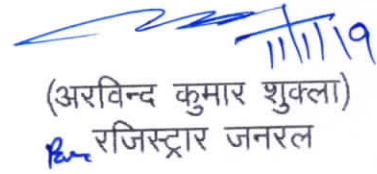 11/1/19
(अरविन्द कुमार शुक्ला)
रजिस्ट्रार जनरल